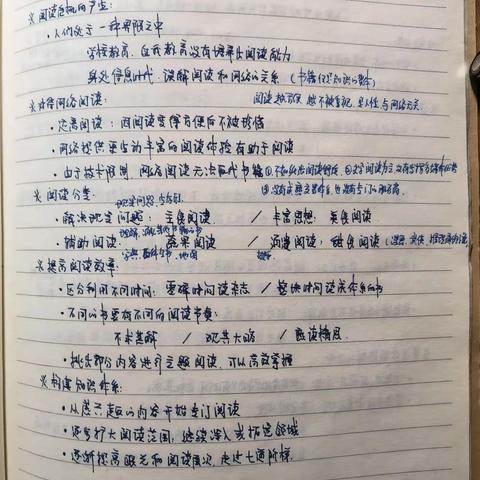 ※ 阅读危机的产生:
· 人们处于一种界限之中
学校教育、自我教育没有培养出阅读能力
身处信息时代,误解阅读和网络的关系(书籍仅是知识的载体)
※ 对待网络阅读: 阅读越方便 越不被重视,是人性与网络无关
· 远离阅读:因阅读变得方便后不被珍惜
· 网络提供更生动丰富的阅读体验有助于阅读
· 由于技术限制,网络阅读无法取代书籍
※ 阅读分类:
· 解决现实问题:主食阅读 / 丰富思想:美食阅读
· 辅助阅读: 蔬果阅读 / 消遣阅读:甜食阅读
※ 提高阅读效率:
· 区分利用不同时间:零碎时间读杂志 / 整块时间读成体系的书
· 不同的书要有不同的阅读节奏:
不求甚解 / 观其大略 / 熟读精思
· 挑选部分内容进行主题阅读,可以高效掌握
※ 构建知识体系:
· 从感兴趣的内容开始专门阅读
· 逐步扩大阅读范围,继续深入或拓宽领域
· 逐渐提高眼光和阅读层次,走过七道阶梯.